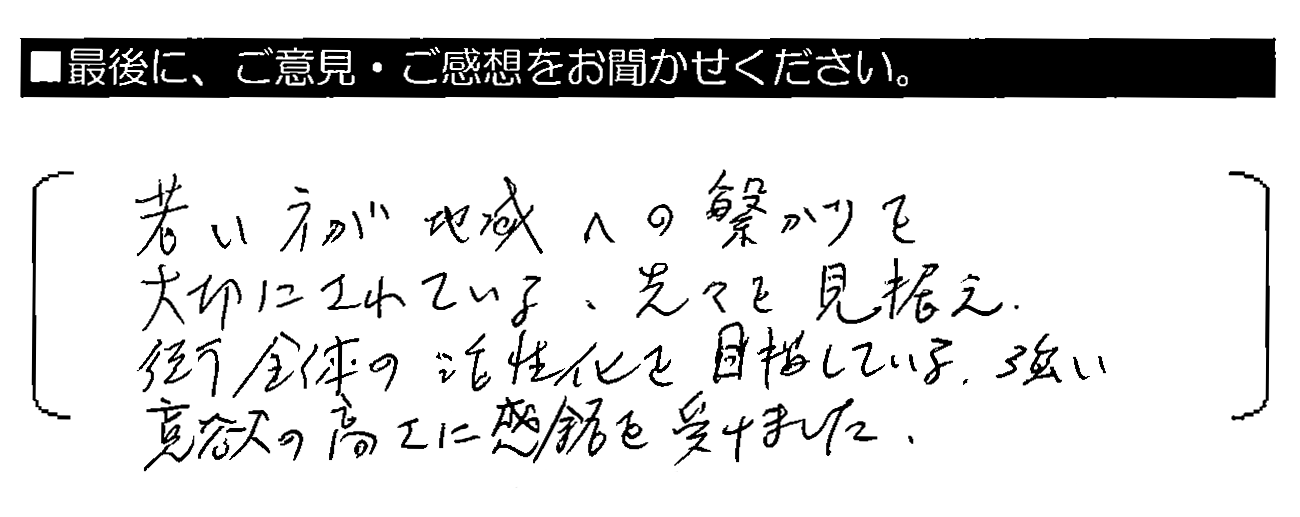 ■最後に、ご意見・ご感想をお聞かせください。
若い方が地域への繋がりを
大切にされている、先々を見据え、
街全体の活性化を目指している、強い
意欲の高さに感銘を受けました。